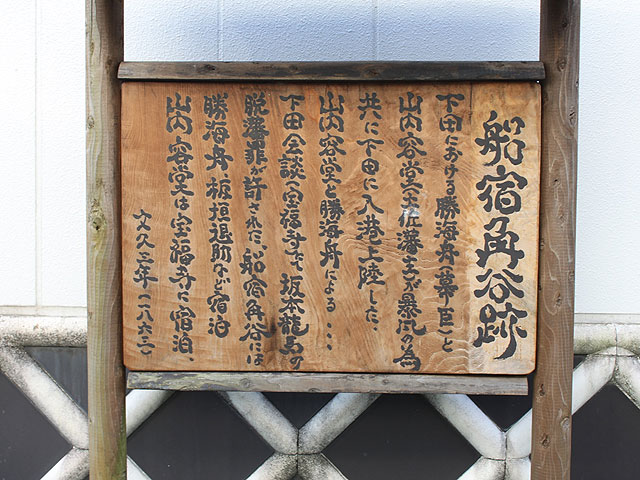 船宿角谷跡
下田における勝海舟(幕臣)と
山内容堂(土佐藩主)が暴風の為
共に下田に入港上陸した。
山内容堂と勝海舟による・・・
下田会談(宝福寺)にて坂本龍馬の
脱藩罪が許された。船宿角谷には
勝海舟、板垣退助など宿泊
山内容堂は宝福寺に宿泊、
文久三年(一八六三)